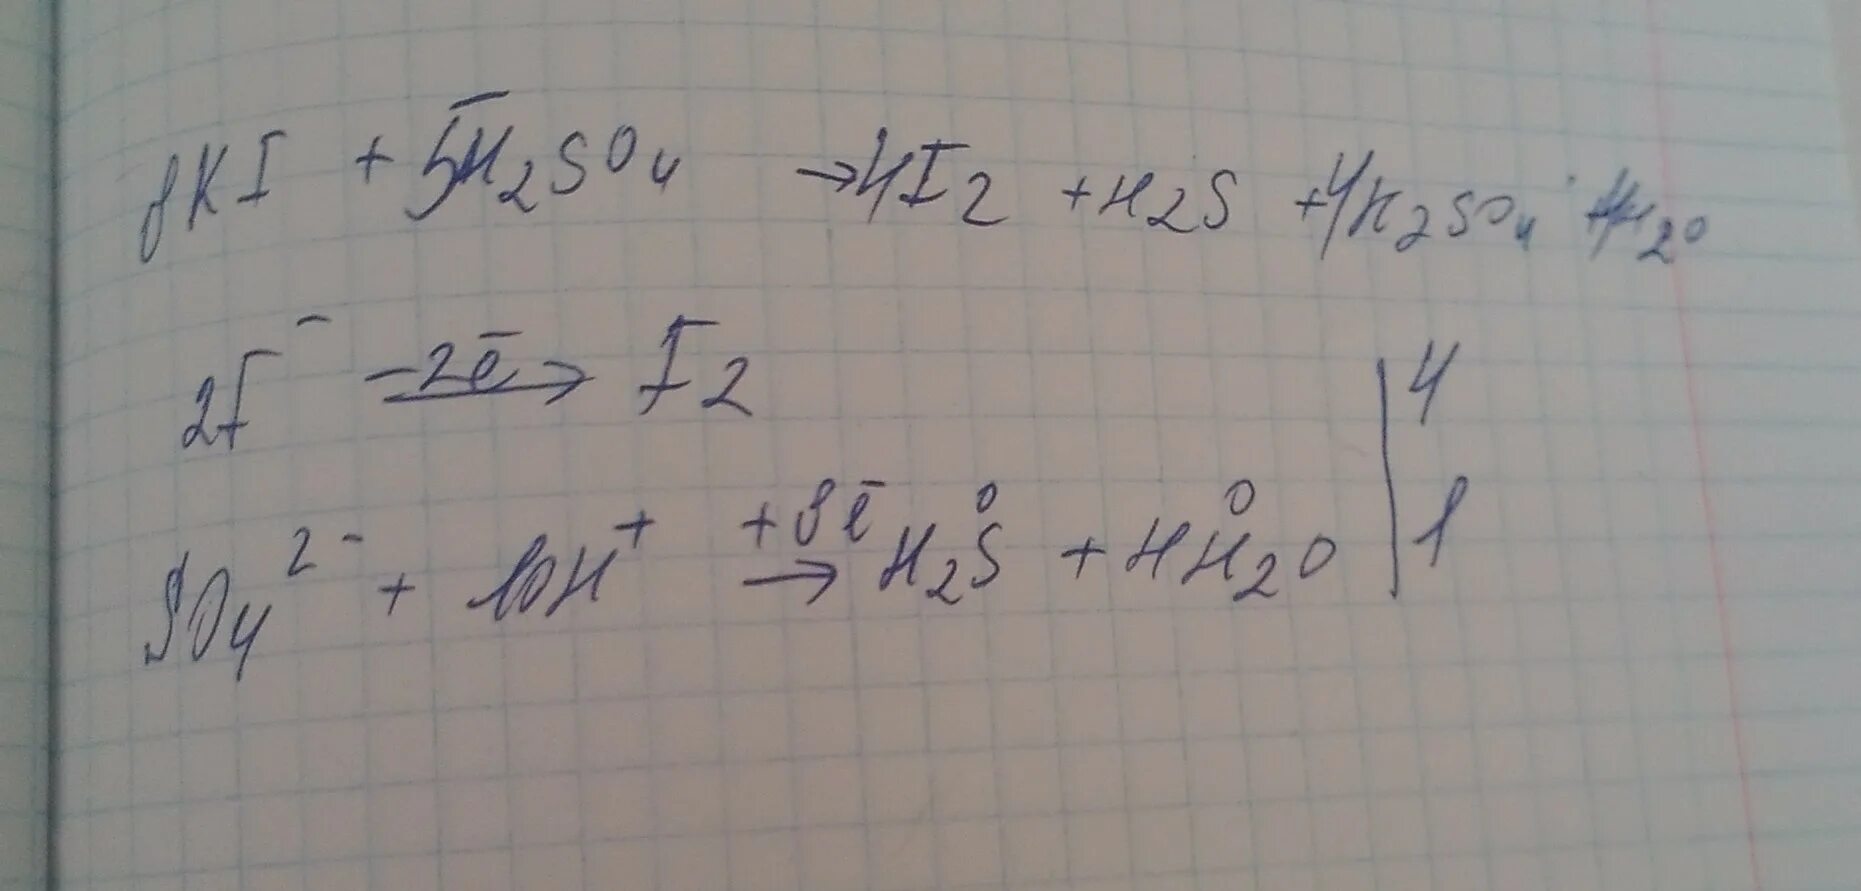 8KI + 5H₂SO₄ → 4I₂ + H₂S + 4K₂SO₄ + 4H₂O
2I⁻ −2ē → I₂ | 4
SO₄²⁻ + 10H⁺ +8ē → H₂S⁰ + 4H₂O⁰ | 1